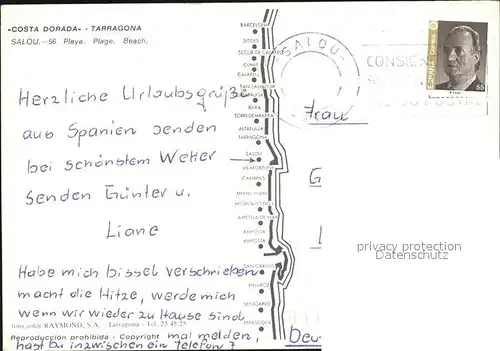 «COSTA DORADA» - TARRAGONA
SALOU.—56 Playa. Plage. Beach.
Herzliche Urlaubsgrüße
aus Spanien senden
bei schönstem Wetter
senden Günter u.
Liane
Habe mich bissel verschrieben
macht die Hitze, werde mich
wenn wir wieder zu Hause sind
mal melden,
hast Du inzwischen ein Telefon?
foto color RAYMOND, S.A. Tarragona - Tel. 23 45 25
Reproducción prohibida - Copyright
BARCELONA
SITGES
CUNIT
CALAFELL
SAN SALVADOR
BARA
TORREDEMBARRA
ALTAFULLA
TARRAGONA
SALOU
VILAFORTUNY
CAMBRILS
MIAMI PLAYA
HOSPITALET
AMETLLA DE MAR
AMPOSTA
SAN CARLOS
VINAROZ
BENICARLO
PEÑISCOLA
SALOU
ESPAÑA
Correos
55
Frau
G
Deu
privacy protection
Datenschutz